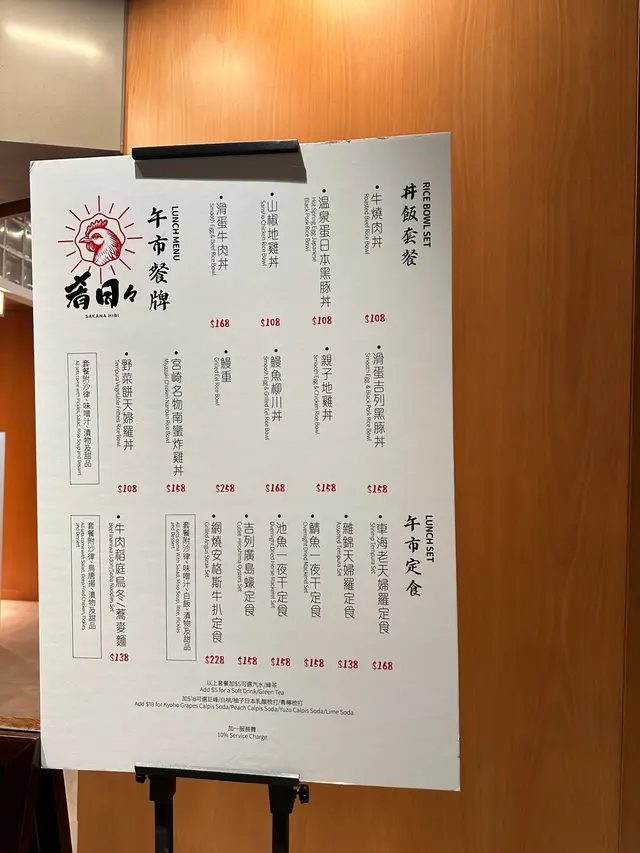 RICE BOWL SET
丼飯套餐
• 牛燒肉丼
Roasted Beef Rice Bowl
$108
• 温泉蛋日本黑豚丼
Hot Spring Egg Japanese
Black Pork Rice Bowl
$108
• 山椒地雞丼
Sansho Chicken Rice Bowl
$108
• 滑蛋牛肉丼
Smooth Egg & Beef Rice Bowl
$168
LUNCH MENU
午市餐牌
肴日々
SAKANA HIBI
• 滑蛋吉列黑豚丼
Smooth Egg & Black Pork Rice Bowl
$158
• 親子地雞丼
Smooth Egg & Chicken Rice Bowl
$158
• 鰻魚柳川丼
Smooth Egg & Grilled Eel Rice Bowl
$168
• 鰻重
Grilled Eel Rice Bowl
$258
• 宮崎名物南蠻炸雞丼
Miyazaki Chicken Nanban Rice Bowl
$158
• 野菜餅天婦羅丼
Tempura Vegetable Fritters Rice Bowl
$108
套餐附沙律、味噌汁、漬物及甜品
All sets come with Pickles, Salad, Miso Soup and Dessert
LUNCH SET
午市定食
• 車海老天婦羅定食
Shrimp Tempura Set
$168
• 雜錦天婦羅定食
Assorted Tempura Set
$138
• 鯖魚一夜干定食
Overnight Dried Mackerel Set
$158
• 池魚一夜干定食
Overnight Dried Horse Mackerel Set
$158
• 吉列廣島蠔定食
Cutlet Hiroshima Oysters Set
$158
• 網燒安格斯牛扒定食
Grilled Angus Steak Set
$228
套餐附沙律、味噌汁、白飯、漬物及甜品
All sets come With Salad, Miso Soup, Rice, Pickles
and Dessert
• 牛肉稻庭烏冬/蕎麥麵
Beef Inaniwa Udon/Soba Noodles Set
$138
套餐附沙律、鳥唐揚、漬物及甜品
All sets come with Salad, Deep-Fried Chicken, Pickles
and Dessert
以上套餐加$5可選汽水/綠茶
Add $5 for a Soft Drink/Green Tea
加$18可選巨峰/白桃/柚子日本乳酸梳打/青檸梳打
Add $18 for Kyoho Grapes Calpis Soda/Peach Calpis Soda/Yuzu Calpis Soda/Lime Soda
加一服務費
10% Service Charge